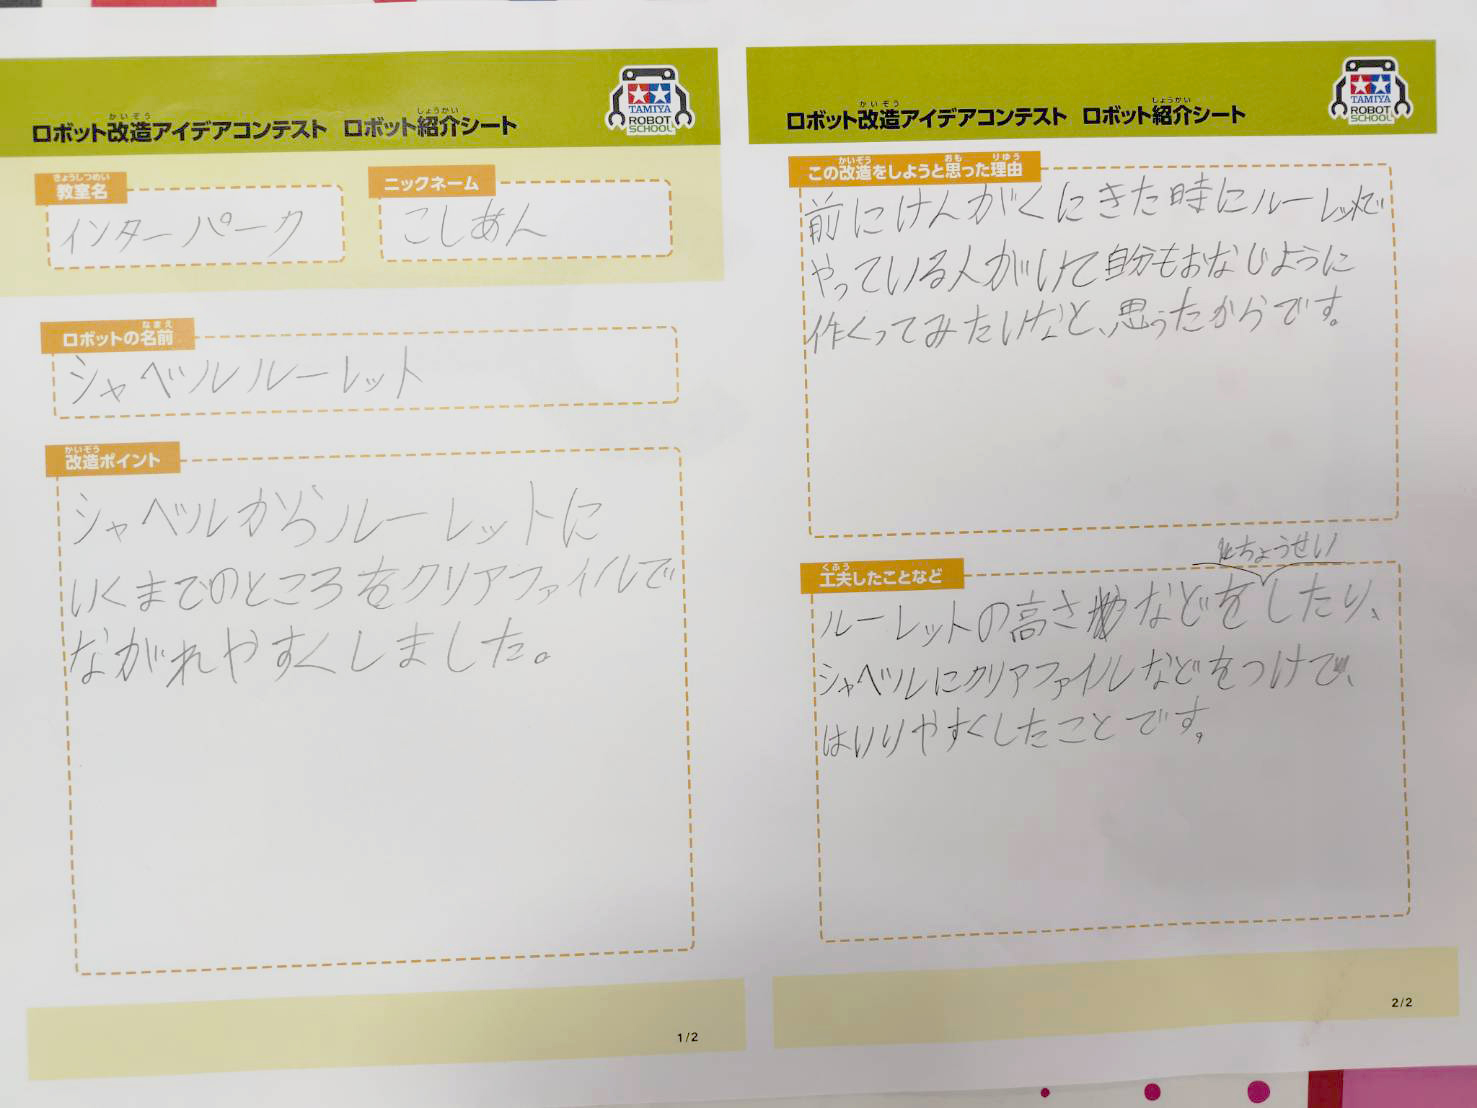 ロボット改造アイデアコンテスト ロボット紹介シート
かいぞう
しょうかい
TAMIYA
ROBOT
SCHOOL
きょうしつめい
教室名
インターパーク
ニックネーム
こしあん
なまえ
ロボットの名前
シャベルルーレット
かいぞう
改造ポイント
シャベルからルーレットに
いくまでのところをクリアファイルで
ながれやすくしました。
1/2
ロボット改造アイデアコンテスト ロボット紹介シート
かいぞう
しょうかい
TAMIYA
ROBOT
SCHOOL
かいぞう おも りゆう
この改造をしようと思った理由
前にけんがくにきた時にルーレットで
やっている人がいて自分もおなじように
作くってみたいなと、思ったからです。
くふう
工夫したことなど
ちょうせい
ルーレットの高さなどをしたり、
シャベルにクリアファイルなどをつけて、
はいりやすくしたことです。
2/2